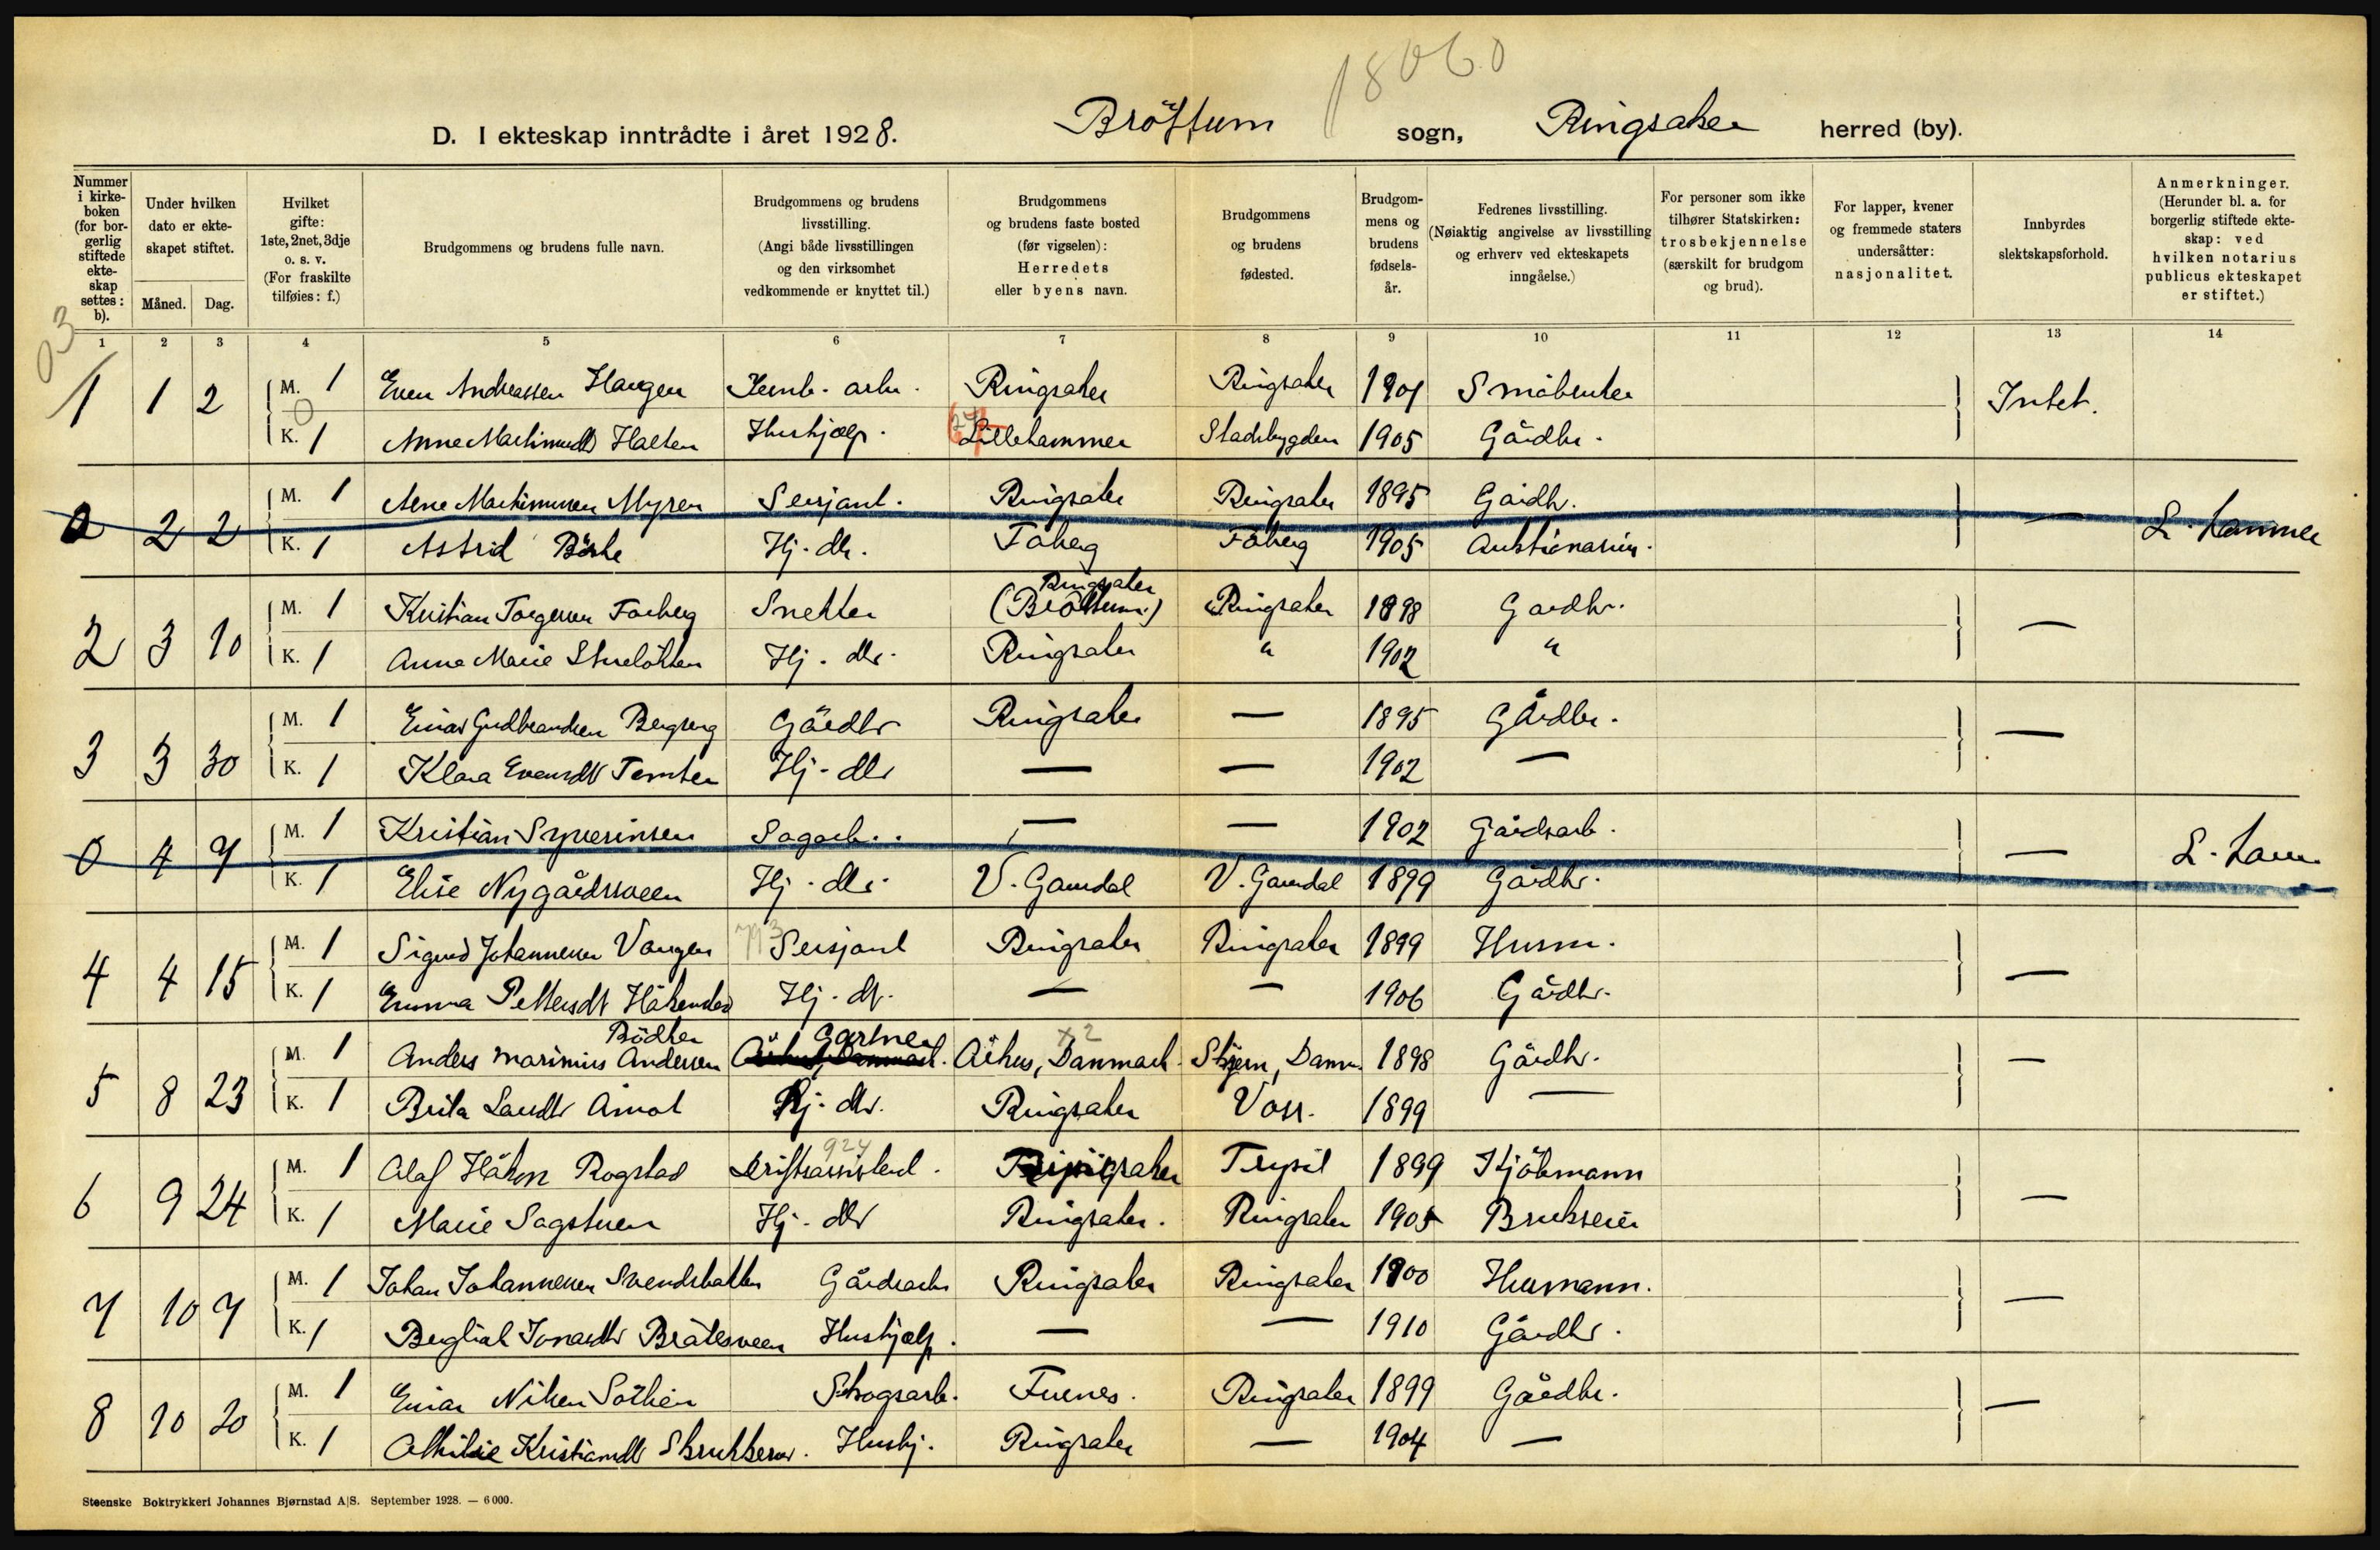 18060
D. I ekteskap inntrådte i året 1928. Bröttum sogn, Ringsaker herred (by).
Nummer i kirkeboken (for borgerlig stiftede ekteskap settes: b).
Under hvilken dato er ekteskapet stiftet.
Måned. Dag.
Hvilket gifte: 1ste, 2net, 3dje o. s. v. (For fraskilte tilføies: f.)
Brudgommens og brudens fulle navn.
Brudgommens og brudens livsstilling. (Angi både livsstillingen og den virksomhet vedkommende er knyttet til.)
Brudgommens og brudens faste bosted (før vigselen): Herredets eller byens navn.
Brudgommens og brudens fødested.
Brudgommens og brudens fødselsår.
Fedrenes livsstilling. (Nøiaktig angivelse av livsstilling og erhverv ved ekteskapets inngåelse.)
For personer som ikke tilhører Statskirken: trosbekjennelse (særskilt for brudgom og brud).
For lapper, kvener og fremmede staters undersåtter: nasjonalitet.
Innbyrdes slektskapsforhold.
Anmerkninger. (Herunder bl. a. for borgerlig stiftede ekteskap: ved hvilken notarius publicus ekteskapet er stiftet.)
03
1 2 3 4 5 6 7 8 9 10 11 12 13 14
1 1 2 M. 1 Even Andreassen Haugen Jernb. arb. Ringsaker Ringsaker 1901 Småbruker Intet.
K. 1 Anne Martinusdtr Halten Hushjælp. Lillehammer Stadsbygden 1905 Gårdbr.
0 2 2 M. 1 Arne Martinussen Myren Sersjant. Ringsaker Ringsaker 1895 Gårdbr. — L. hammer
K. 1 Astrid Börke Hj. dtr. Fåberg Fåberg 1905 Auktionarius.
2 3 10 M. 1 Kristian Torgersen Forberg Snekker Ringsaker (Bröttum) Ringsaker 1898 Gardbr. —
K. 1 Anna Marie Stuelökken Hj. dtr. Ringsaker " 1902 "
3 3 30 M. 1 Einar Gudbrandsen Bergseng Gårdbr Ringsaker — 1895 Gårdbr. —
K. 1 Klara Evensdtr Tomter Hj. dtr — — 1902 —
0 4 7 M. 1 Kristian Syverinsen Sagarb. — — 1902 Gårdsarb. — L. ham.
K. 1 Elise Nygårdsveen Hj. dtr. V. Gausdal V. Gausdal 1899 Gårdbr.
4 4 15 M. 1 Sigurd Johannesen Vangen Sersjant Ringsaker Ringsaker 1899 Husm. —
K. 1 Emma Pettersdtr Håkenstad Hj. dt. — — 1906 Gårdbr.
Bödker Gartner x2
5 8 23 M. 1 Anders Marinius Andersen Århus, Danmark. Århus, Danmark. Skjern, Danm. 1898 Gårdbr. —
K. 1 Brita Larsdtr Århot Hj. dtr. Ringsaker Voss. 1899 —
924
6 9 24 M. 1 Olaf Håkon Rogstad Driftsassistent. Ringsaker Trysil 1899 Kjöbmann —
K. 1 Marie Sagstuen Hj. dtr Ringsaker. Ringsaker 1905 Brukseier
7 10 7 M. 1 Johan Johannesen Svendsbakken Gårdsarb Ringsaker Ringsaker 1900 Husmann. —
K. 1 Bergliot Jonasdtr Bråtesveen Hushjælp. — — 1910 Gårdbr.
8 10 20 M. 1 Einar Nilsen Sötlien Skogsarb. Furnes. Ringsaker 1899 Gårdbr. —
K. 1 Othilie Kristiansdtr Skrukkerud. Hushj. Ringsaker — 1904 —
Steenske Boktrykkeri Johannes Bjørnstad A/S. September 1928. — 6 000.